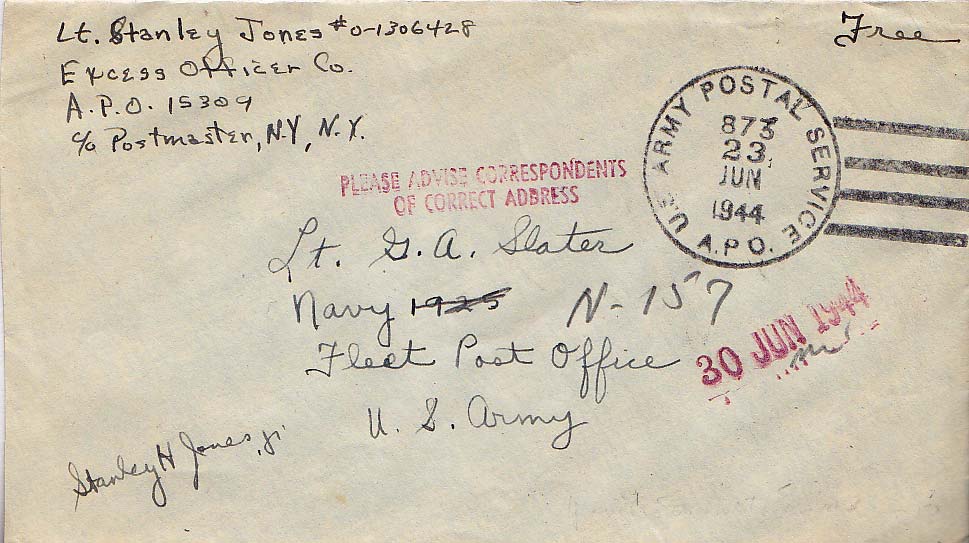 Lt. Stanley Jones #0-1306428
Free
Excess Officer Co.
A.P.O. 15309
c/o Postmaster, N.Y., N.Y.
U.S. ARMY POSTAL SERVICE
873
23
JUN
1944
A.P.O.
PLEASE ADVISE CORRESPONDENTS
OF CORRECT ADDRESS
Lt. G. A. Slater
Navy 1925 N-157
Fleet Post Office
30 JUN 1944
U. S. Army
Stanley H Jones, Jr